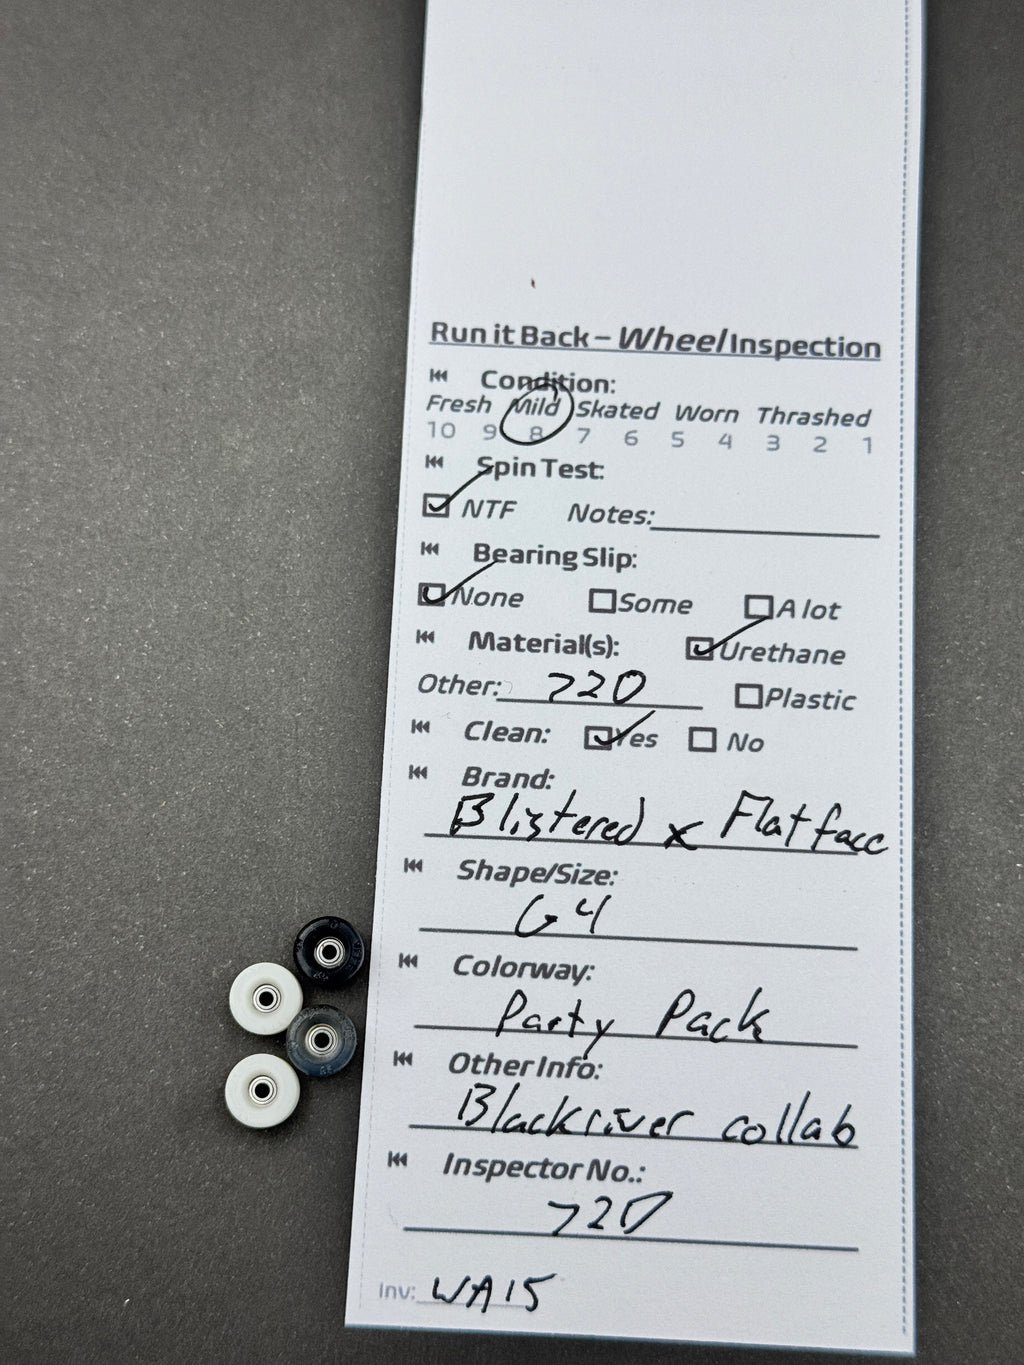 Run it Back - Wheel Inspection
Condition:
Fresh Mild Skated Worn Thrashed
10 9 8 7 6 5 4 3 2 1
Spin Test:
NTF Notes:
Bearing Slip:
None Some A lot
Material(s): Urethane
Other: 720 Plastic
Clean: Yes No
Brand:
Blistered x Flatface
Shape/Size:
G4
Colorway:
Party Pack
Other Info:
Blackriver collab
Inspector No.:
720
Inv: WA15